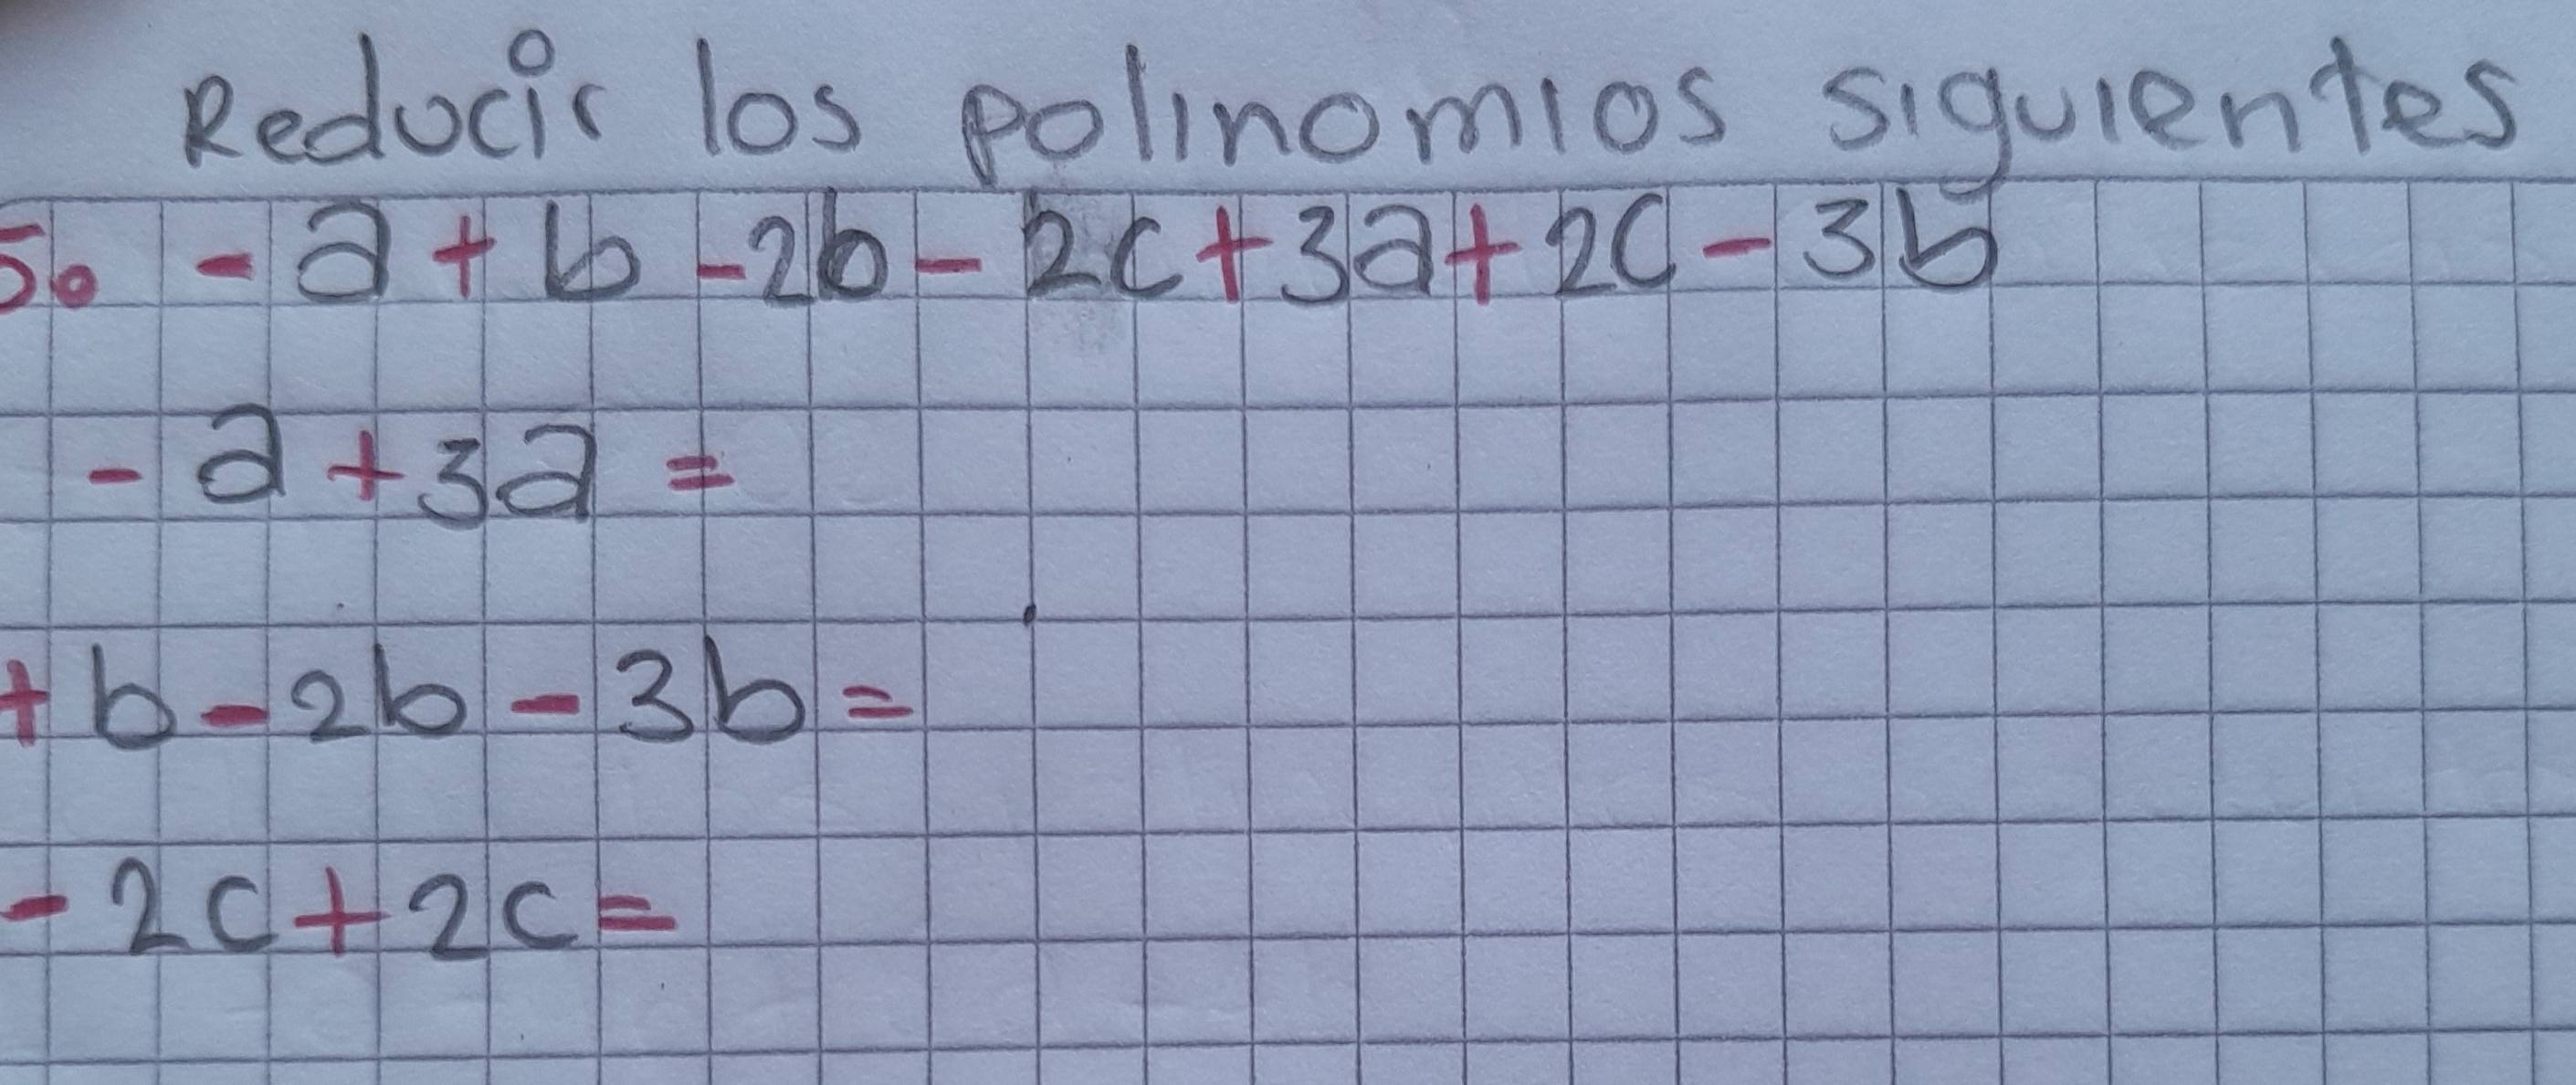 Reducir los polinomios siguientes
5. - a + b - 2b - 2c + 3a + 2c - 3b
- a + 3a =
+ b - 2b - 3b =
- 2c + 2c =